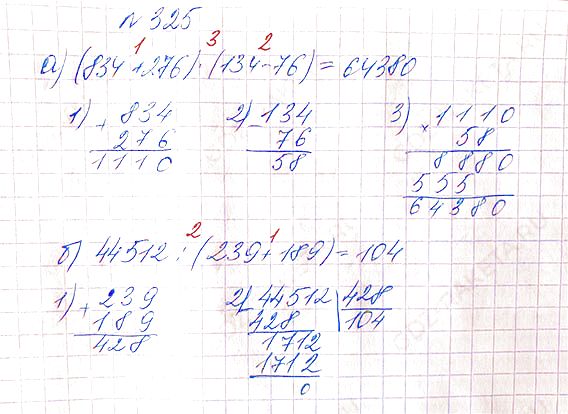 № 325
1 3 2
а) (834+276)·(134-76)=64380
1) + 834
276
1110
2) - 134
76
58
3) × 1110
58
8880
555
64380
2 1
б) 44512:(239+189)=104
1) + 239
189
428
2) 44512 | 428
428 104
1712
1712
0